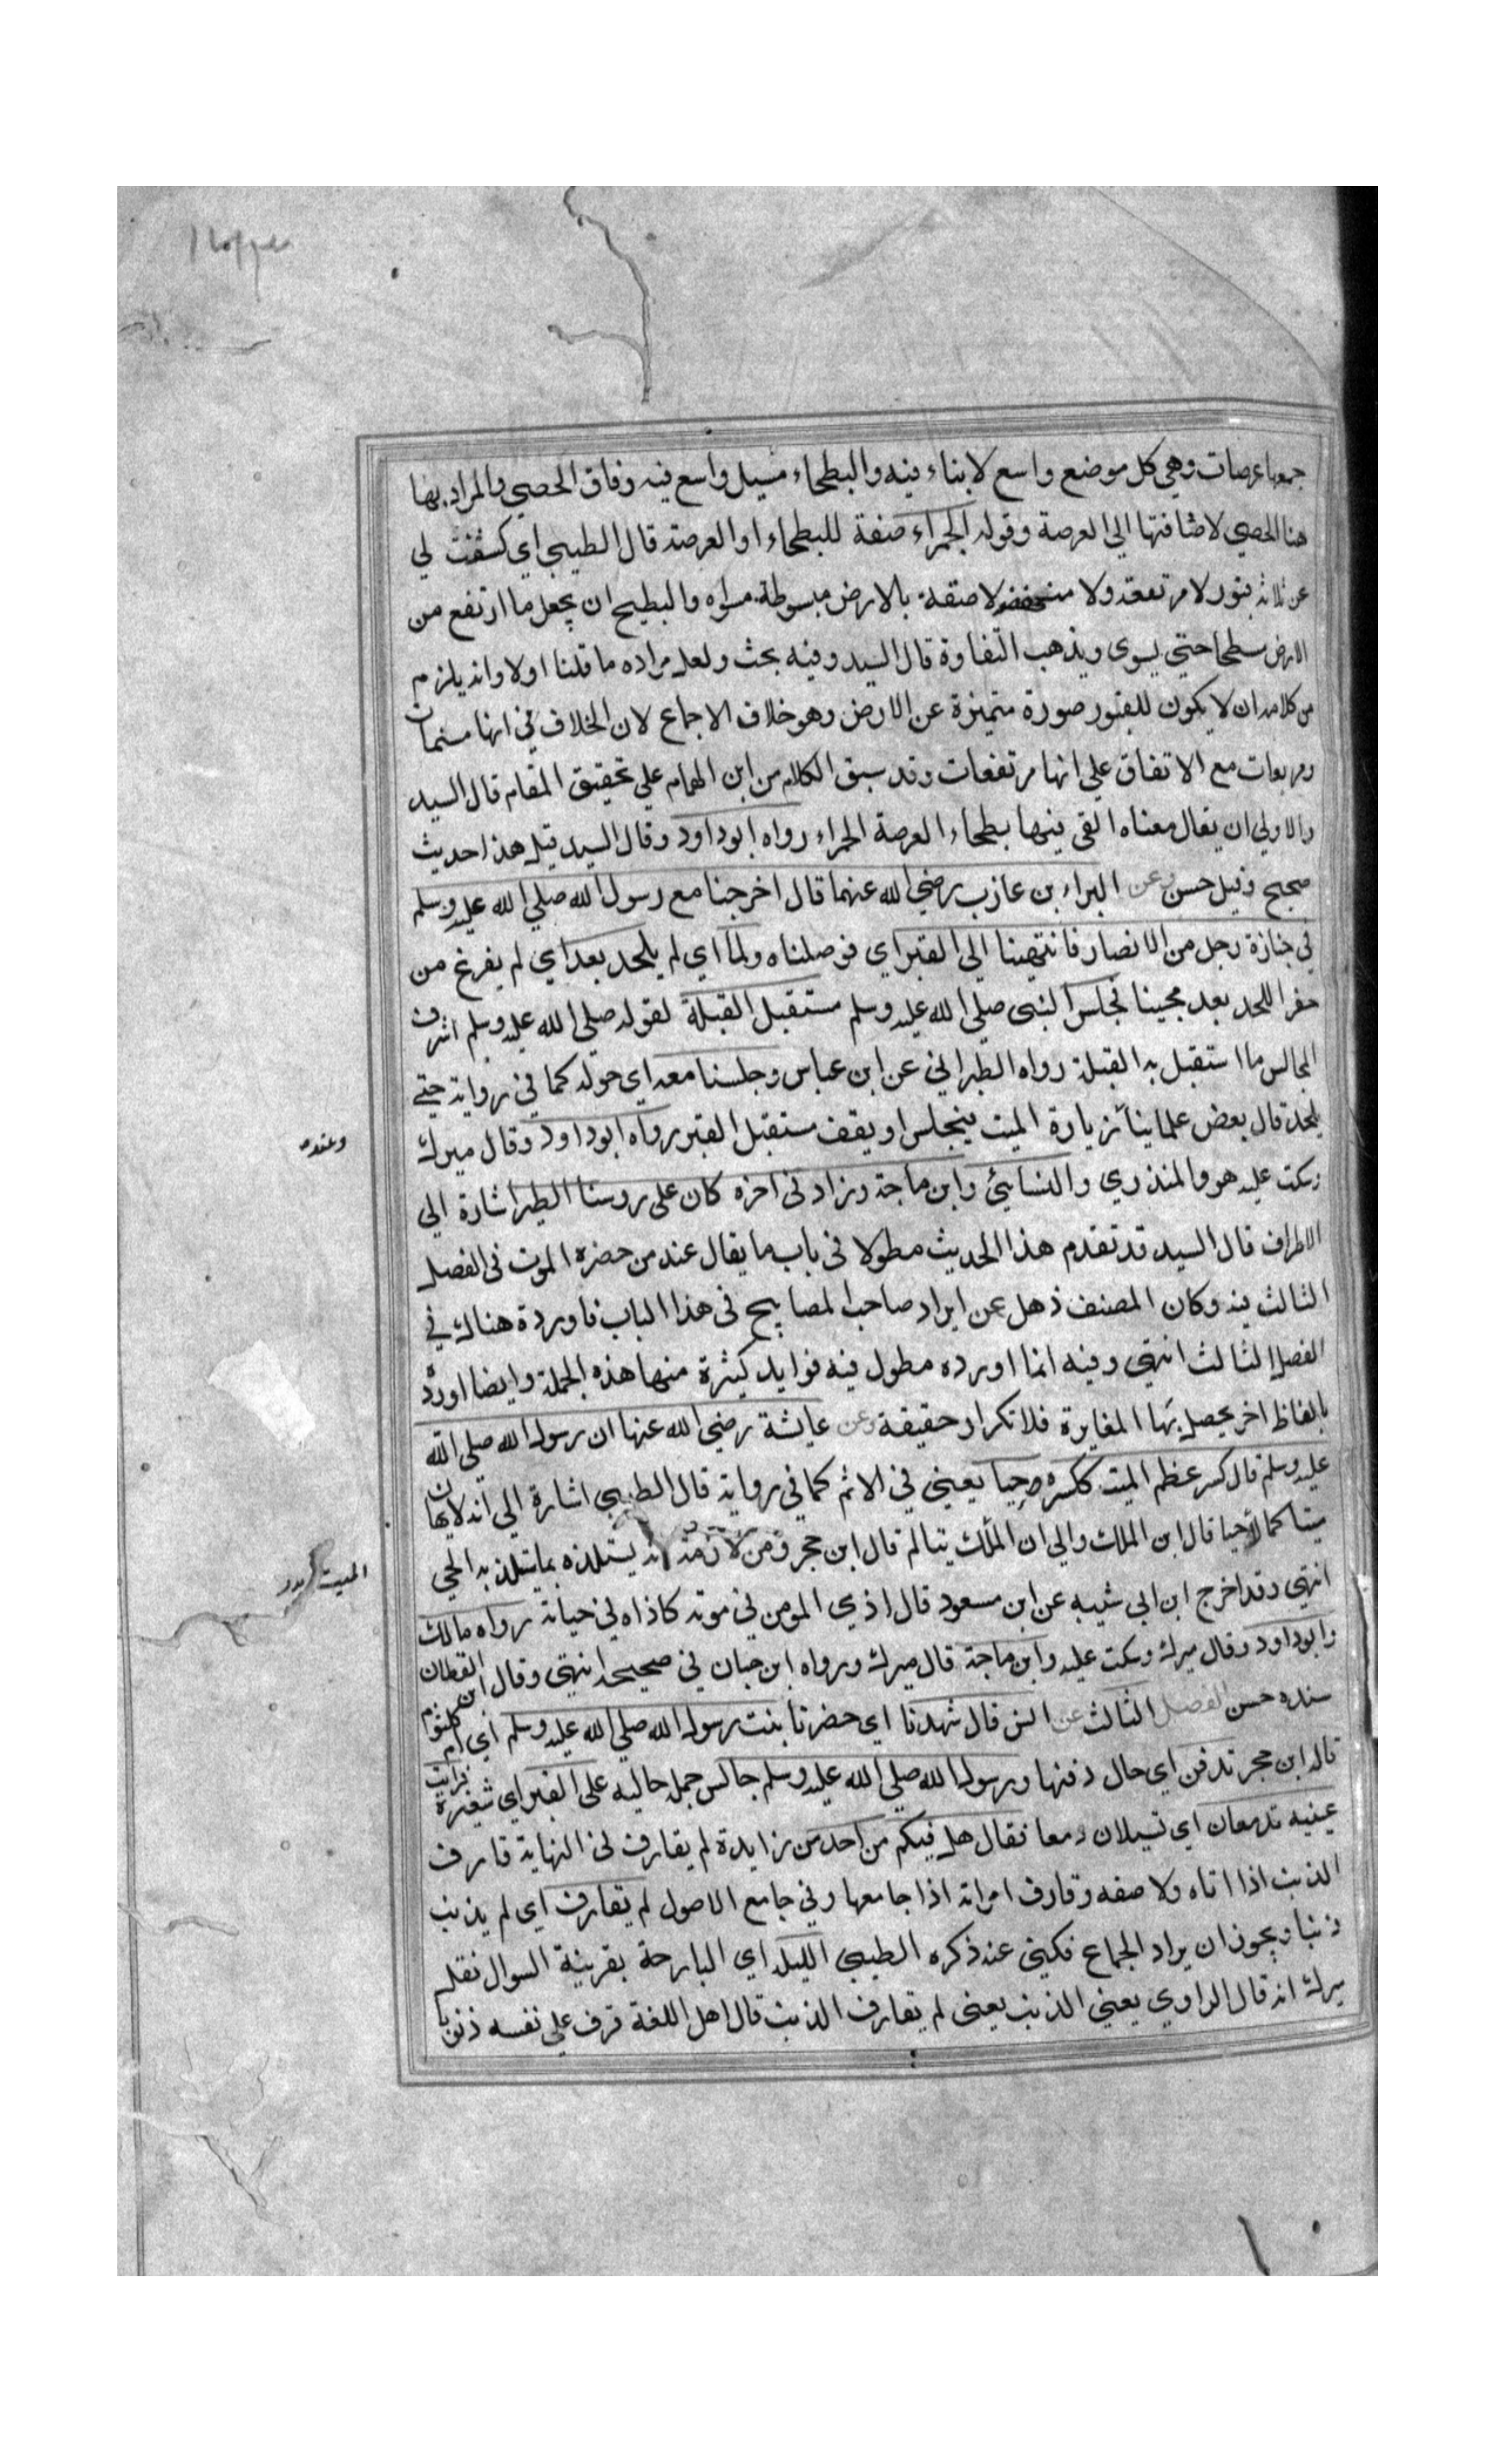 جمعها عرصات وهي كل موضع واسع لا بناء فيه والبطحاء مسيل واسع فيه دقاق الحصي والمراد بها
هنا الحصي لاضافتها الي العرصة وقوله الحمراء صفة للبطحاء او العرصة قال الطيبي اي كشفت لي
عن ثلاثة قبور لا مرتفعة ولا منخفضة لاصقة بالارض مبسوطة مسواه والبطيح ان يجعل ما ارتفع من
الارض سطحا حتي يسوي ويذهب التفاوة قال السيد وفيه بحث ولعل مراده ما قلنا اولا وانه يلزم
من كلامه ان لا يكون للقبور صورة متميزة عن الارض وهو خلاف الاجماع لان الخلاف في انها مسنمات
ومربعات مع الاتفاق علي انها مرتفعات وقد سبق الكلام من ابن الهمام علي تحقيق المقام قال السيد
والاولي ان يقال معناه القي فيها بطحاء العرصة الحمراء رواه ابو داود وقال السيد قيل هذا حديث
صحيح وقيل حسن وعن البراء بن عازب رضي الله عنهما قال اخرجنا مع رسول الله صلي الله عليه وسلم
في جنازة رجل من الانصار فانتهينا الي القبر اي فوصلناه ولما اي لم يلحد بعد اي لم يفرغ من
حفر اللحد بعد مجينا فجلس النبى صلي الله عليه وسلم مستقبل القبلة لقوله صلي الله عليه وسلم اشرف
المجالس ما استقبل به القبلة رواه الطبراني عن ابن عباس وجلسنا معه اي حوله كما في رواية حتي
يلحد قال بعض علماينا زيارة الميت فيجلس او يقف مستقبل القبر رواه ابو داود وقال ميرك
وسكت عليه هو والمنذري والنسايئ وابن ماجة وزاد فى اخره كان على روسنا الطير اشارة الي
الاطراف قال السيد قد تقدم هذا الحديث مطولا فى باب ما يقال عند من حضره الموت فى الفصل
الثالث منه وكان المصنف ذهل عن ايراد صاحب المصابيح فى هذا الباب فاوردة هناك في
الفصل الثالث انتهي وفيه انما اورده مطول فيه فوايد كثيرة منها هذه الجملة وايضا اورد
بالفاظ اخر يحصل بها المغايرة فلا تكرار حقيقة وعن عايشة رضي الله عنها ان رسول الله صلي الله
عليه وسلم قال كسر عظم الميت ككسره حيا يعني في الاثم كما في رواية قال الطيبي اشارة الي انه لايهان
ميتا كما لا حيا قال ابن الملك والي ان الملك يتالم قال ابن حجر ومن لازمه انه يستلذه بما يتلذ به الحي
انتهي وقد اخرج ابن ابي شيبه عن ابن مسعود قال اذي المومن في موته كاذاه في حياته رواه مالك
وابو داود وقال ميرك وسكت عليه وابن ماجة قال ميرك ورواه ابن حبان في صحيحه انتهي وقال ابن القطان
سنده حسن الفصل الثالث عن انس قال شهدنا اي حضرنا بنت رسول الله صلي الله عليه وسلم اي ام كلثوم
قاله ابن حجر تدفن اي حال دفنها ورسول الله صلي الله عليه وسلم جالس جمل حاليه علي القبر اي شفيره فرايت
عينيه تدمعان اي تسيلان دمعا فقال هل فيكم من احد من زايدة لم يقارف في النهاية قارف
الذنب اذا اتاه ولاصقه وقارف امراته اذا جامعها وفي جامع الاصول لم يقارف اي لم يذنب
ذنبا ويجوز ان يراد الجماع فكني عنه ذكره الطيبي الليلة اي البارحة بقرينة السوال نقله
ميرك انه قال الراوي يعني الذنب يعنى لم يقارف الذنب قال اهل اللغة قرف علي نفسه ذنوبا
وعنده
الميت